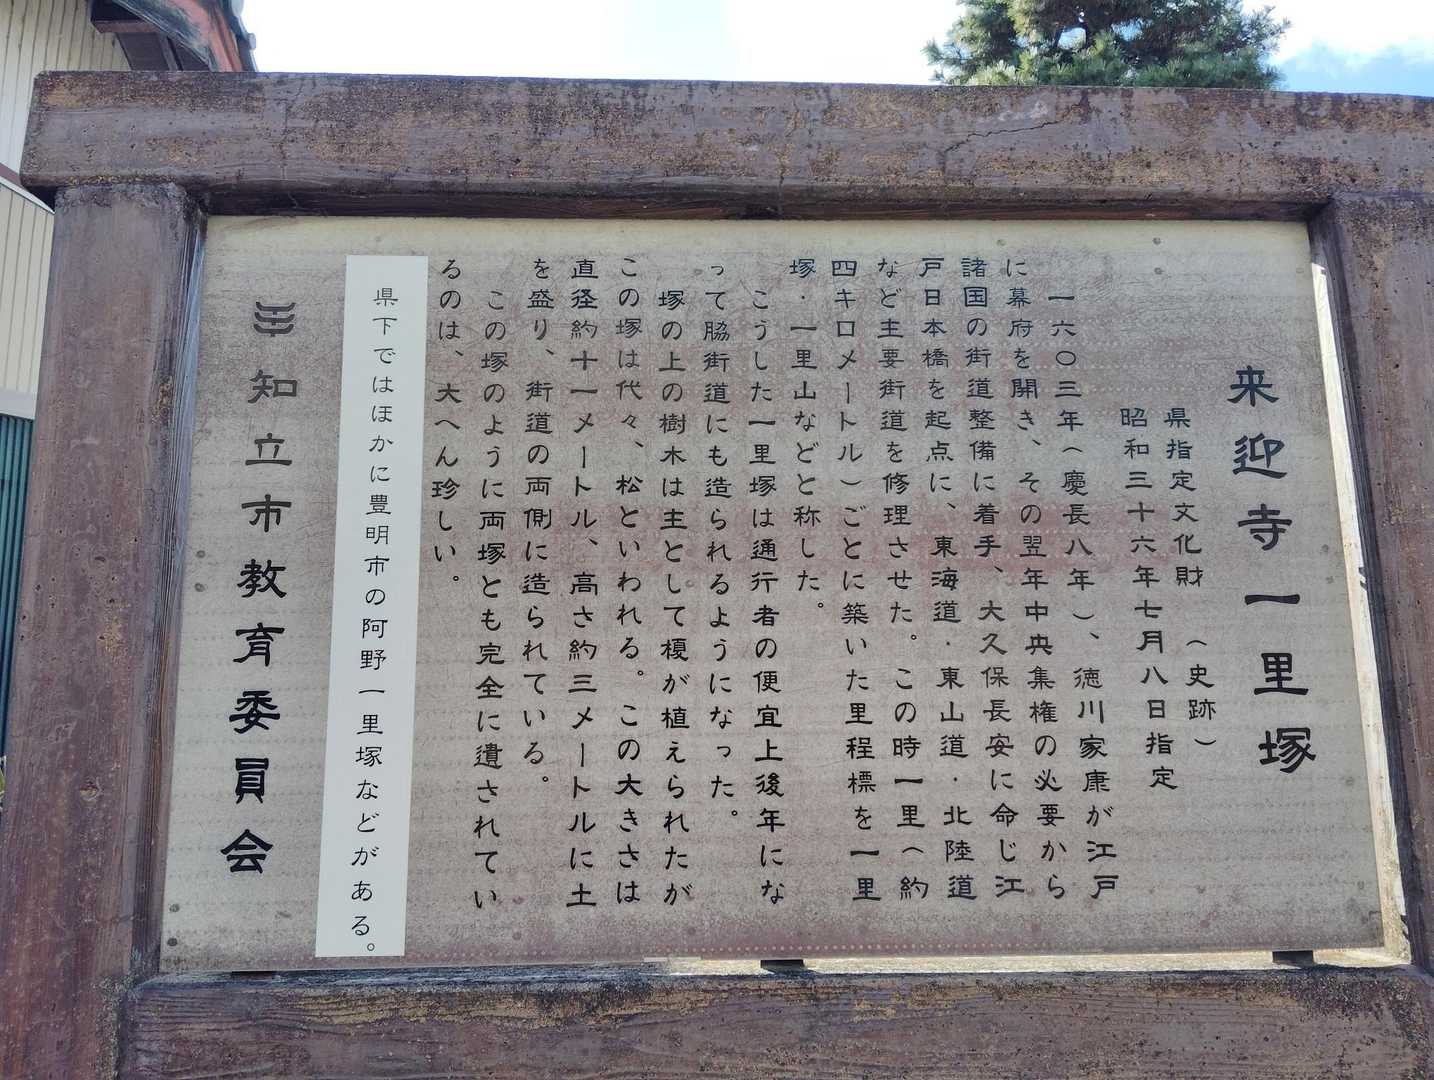 来迎寺一里塚
県指定文化財　（史跡）
昭和三十六年七月八日指定
一六〇三年（慶長八年）、徳川家康が江戸
に幕府を開き、その翌年中央集権の必要から
諸国の街道整備に着手、大久保長安に命じ江
戸日本橋を起点に、東海道・東山道・北陸道
など主要街道を修理させた。この時一里（約
四キロメートル）ごとに築いた里程標を一里
塚・一里山などと称した。
こうした一里塚は通行者の便宜上後年にな
って脇街道にも造られるようになった。
塚の上の樹木は主として榎が植えられたが
この塚は代々、松といわれる。この大きさは
直径約十一メートル、高さ約三メートルに土
を盛り、街道の両側に造られている。
この塚のように両塚とも完全に遺されてい
るのは、大へん珍しい。
県下ではほかに豊明市の阿野一里塚などがある。
知立市教育委員会